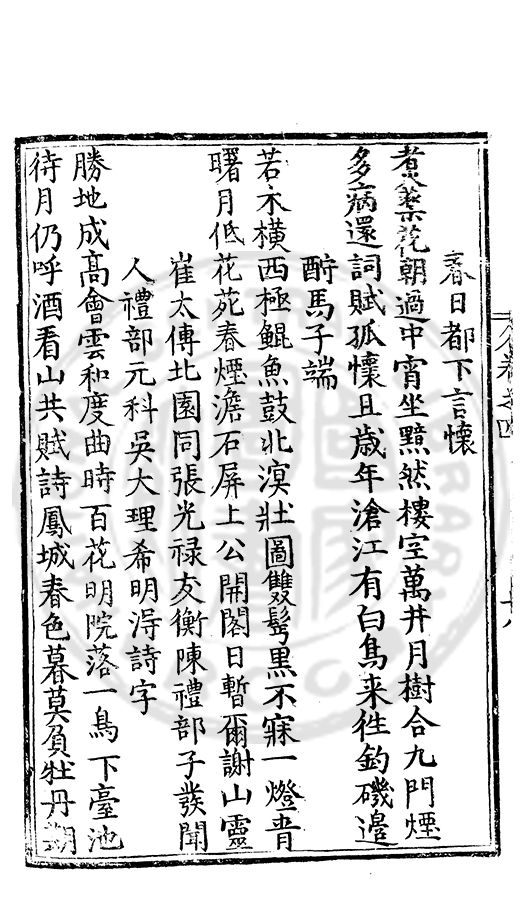 春日都下言懷
煮藥花朝過中宵坐黯然樓空萬井月樹合九門煙
多病還詞賦孤懷且歲年滄江有白鳥来徃釣磯邊
酧馬子端
若木橫西極鯤魚鼓北溟壯圖雙鬂黒不寐一燈青
曙月低花苑春煙澹石屏上公開閣日暫爾謝山靈
崔太傅北園同張光禄友衡陳禮部子發聞
人禮部元科吳大理希明淂詩字
勝地成高會雲和度曲時百花明院落一鳥下臺池
待月仍呼酒看山共賦詩鳳城春色暮莫負牡丹期